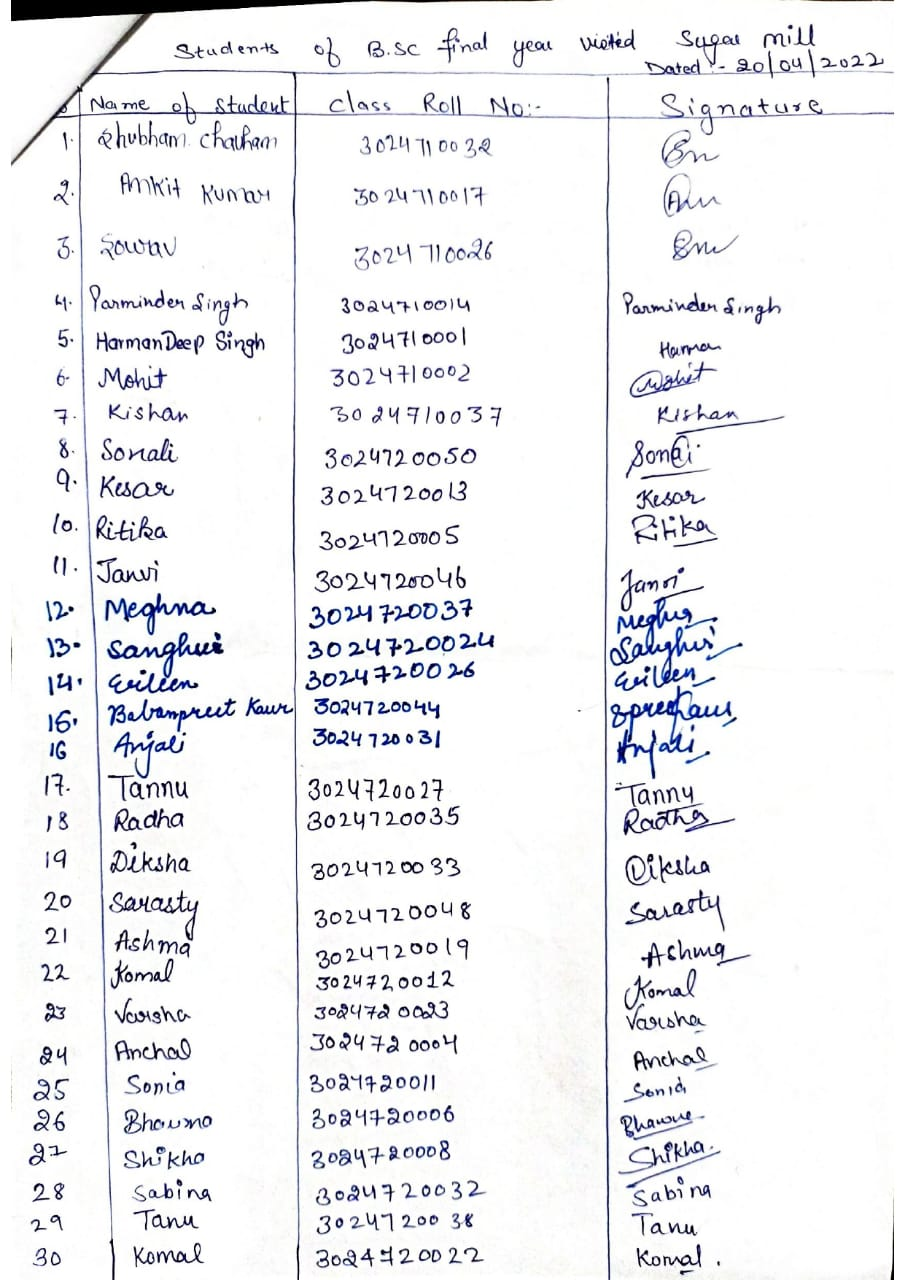 Students of B.SC final year visited Sugar mill
Dated :- 20/04/2022
Name of Student Class Roll No:- Signature
1. Shubham Chauham 3024710032
2. Ankit Kumar 3024710017
3. Sourav 3024710026
4. Parminder Singh 3024710014 Parminder Singh
5. HarmanDeep Singh 3024710001 Harman
6. Mohit 3024710002 Mohit
7. Kishan 3024710037 Kishan
8. Sonali 3024720050
9. Kesar 3024720013 Kesar
10. Ritika 3024720005 Ritika
11. Janvi 3024720046 Janvi
12. Meghna 3024720037 Meghna
13. Sanghvi 3024720024 Sanghvi
14. Erileen 3024720026 Erileen
15. Babanpreet Kaur 3024720044
16 Anjali 3024720031 Anjali
17. Tannu 3024720027 Tannu
18 Radha 3024720035 Radha
19 Diksha 3024720033 Diksha
20 Sarasty 3024720048 Sarasty
21 Ashma 3024720019 Ashma
22 Komal 3024720012 Komal
23 Varsha 3024720023 Varsha
24 Anchal 3024720004 Anchal
25 Sonia 3024720011 Sonia
26 Bhawna 3024720006 Bhawna
27 Shikha 3024720008 Shikha.
28 Sabina 3024720032 Sabina
29 Tanu 3024720038 Tanu
30 Komal 3024720022 Komal.